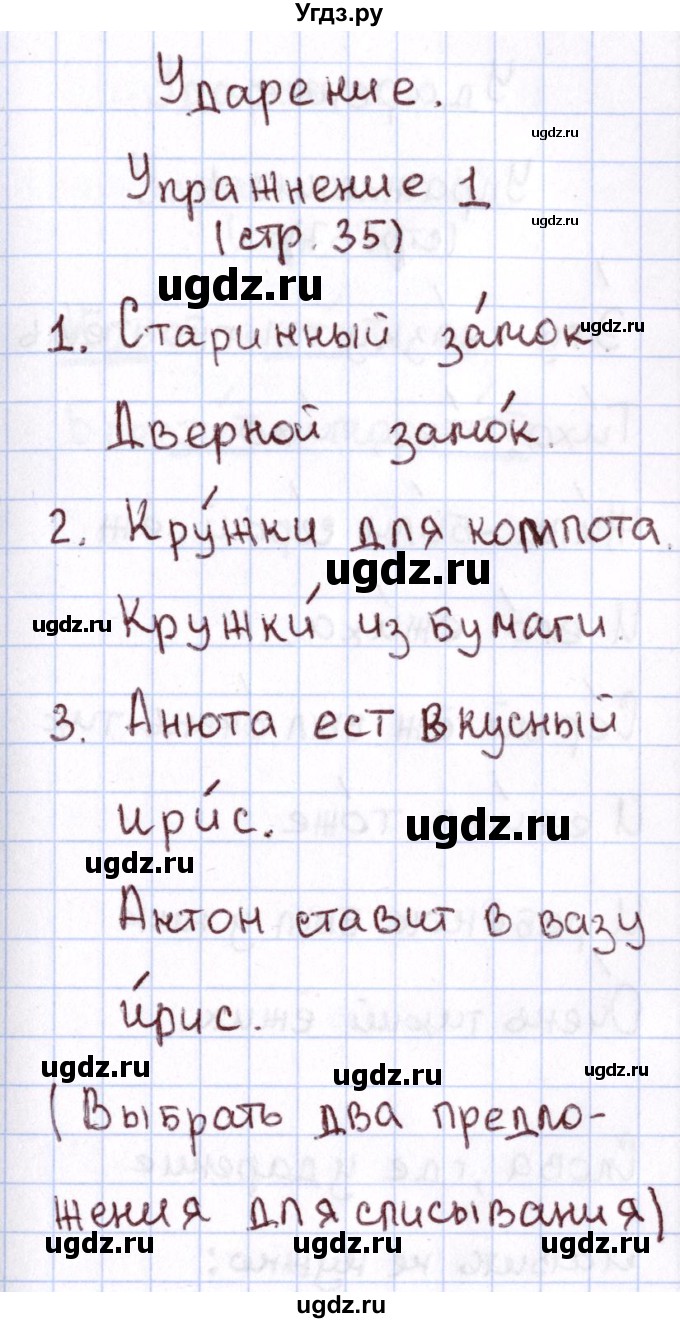 Угдз.ру
Ударение.
ugdz.ru
Упражнение 1
ugdz.ru
(стр. 35)
ugdz.ru
1. Старинный за́мок.
ugdz.ru
Дверной замо́к.
2. Кру́жки для компота.
ugdz.ru
ugdz.ru
Кружки́ из бумаги.
3. Анюта ест вкусный
ири́с.
ugdz.ru
ugdz.ru
Антон ставит в вазу
и́рис.
ugdz.ru
ugdz.ru
ugdz.ru
(Выбрать два предло-
жения для списывания)
ugdz.ru
ugdz.ru
ugdz.ru
ugdz.ru